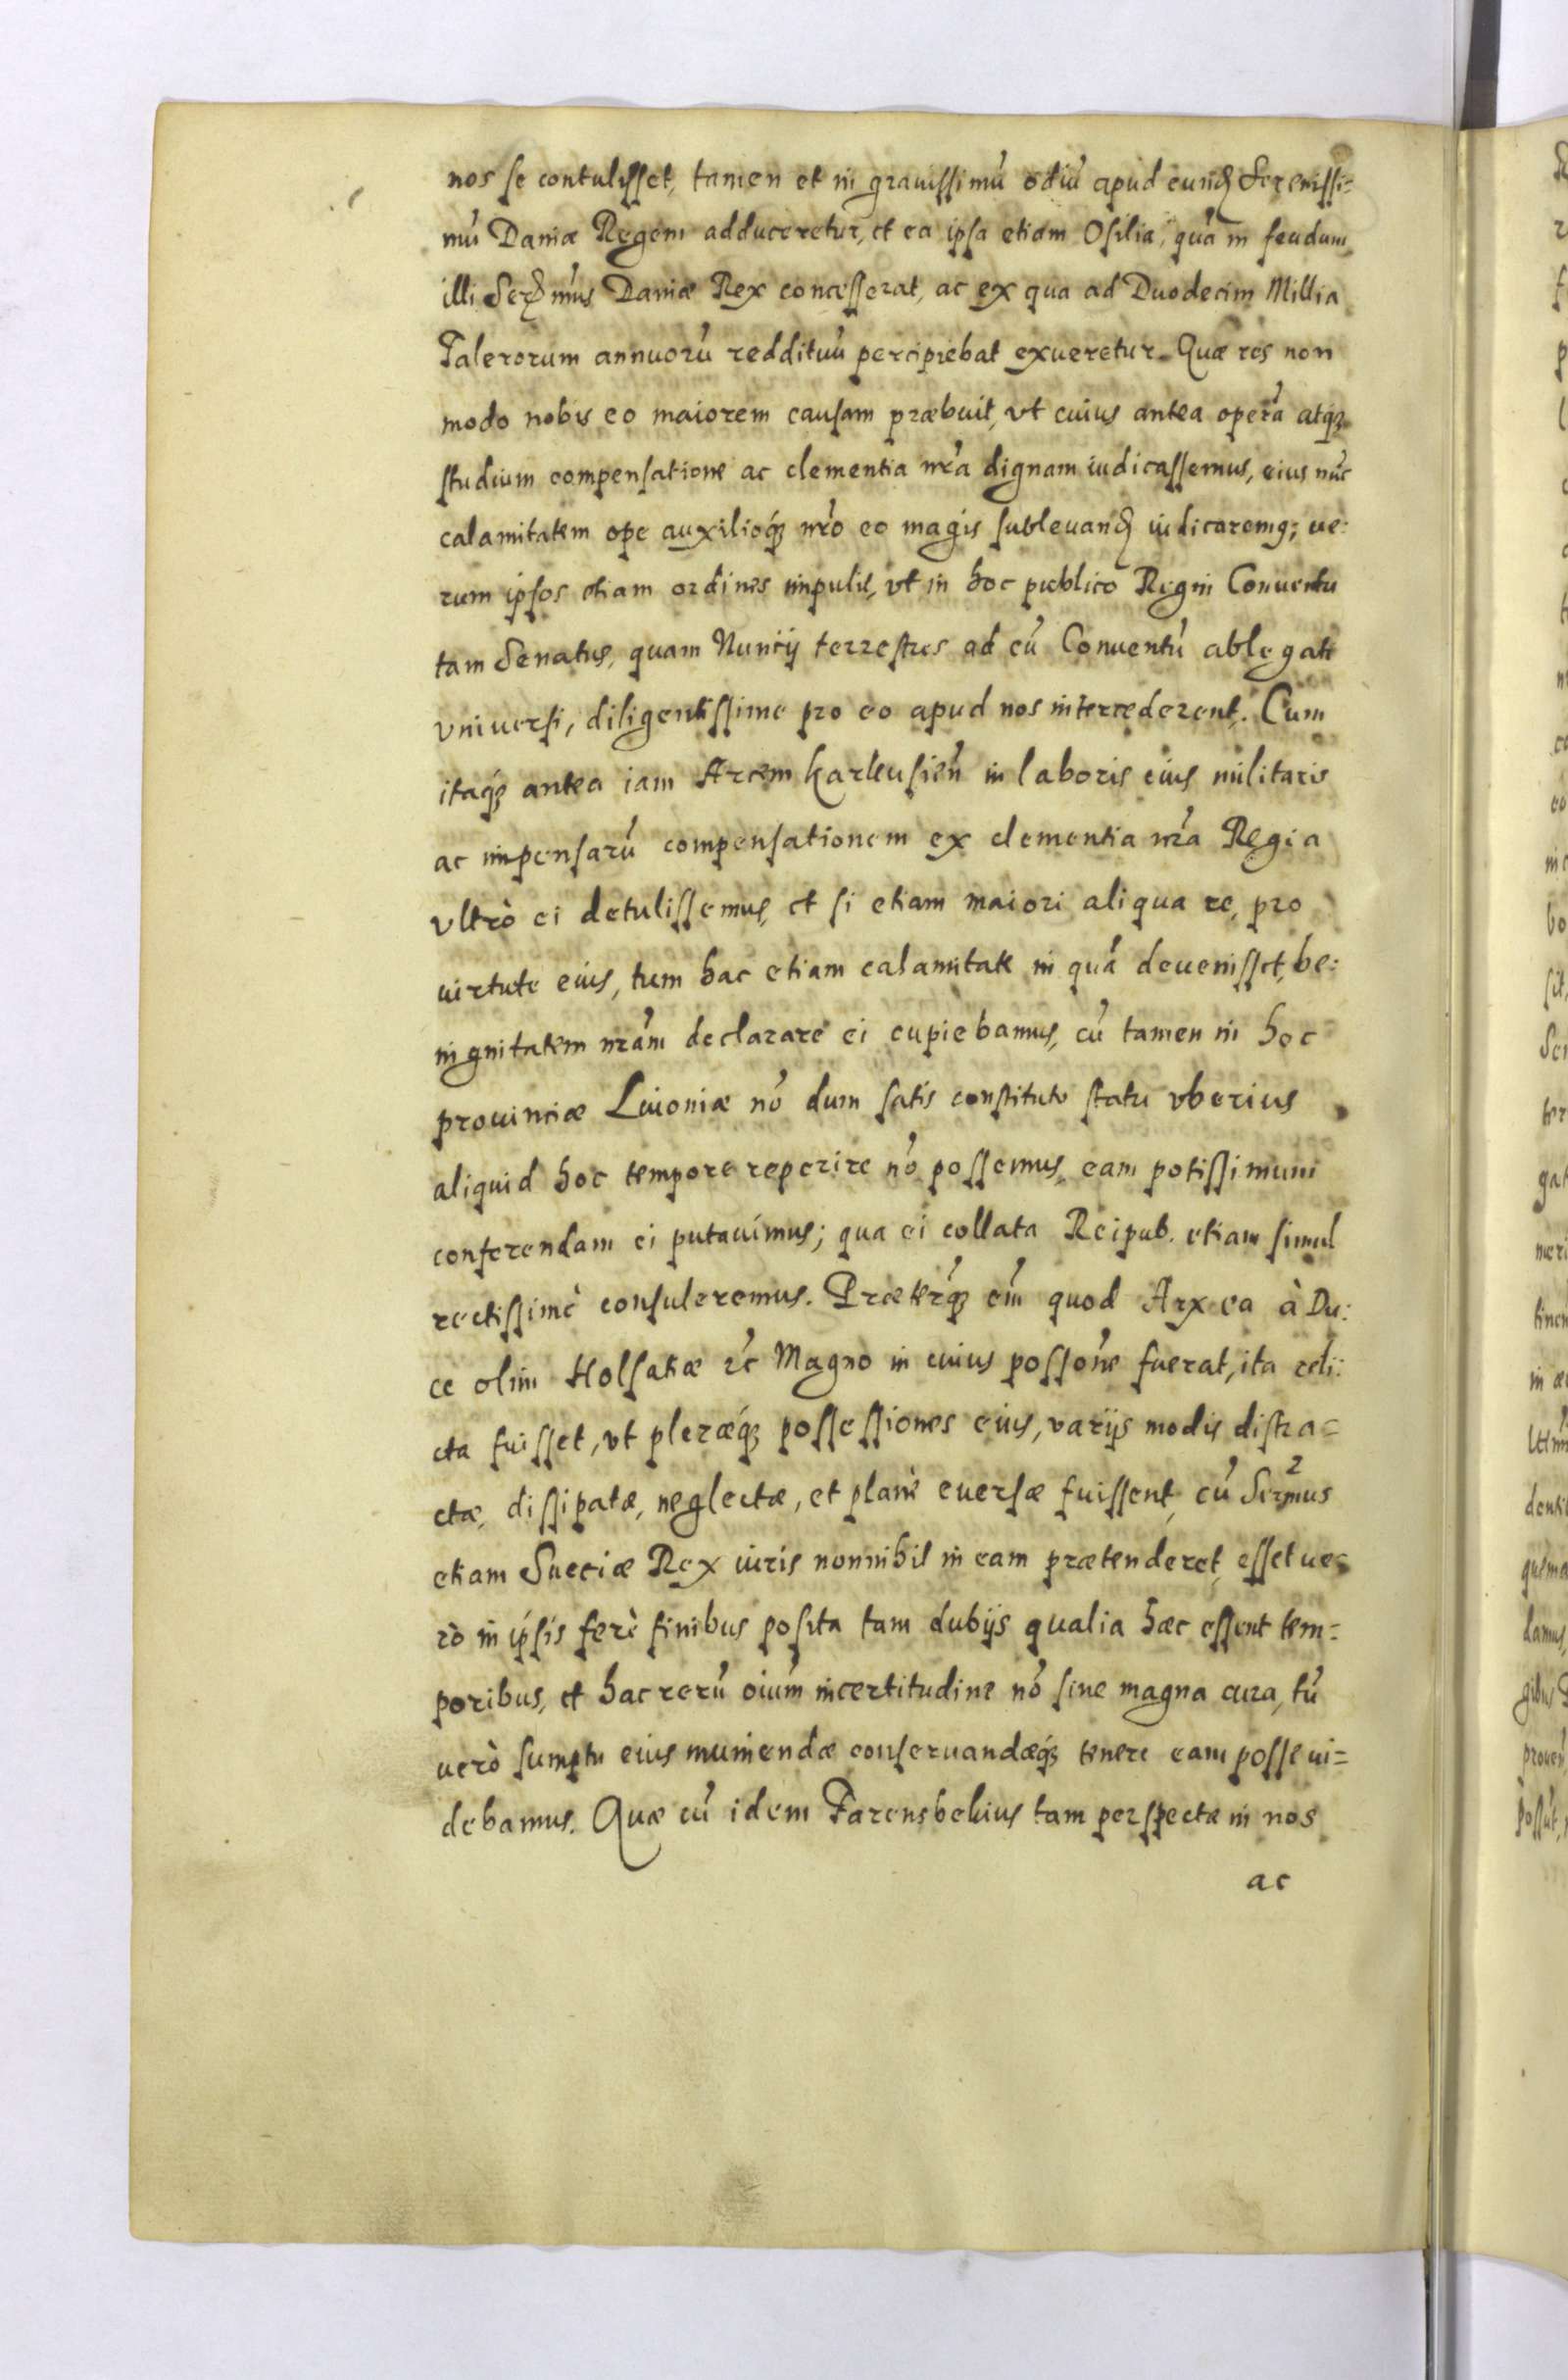 nos se contulisset, tamen et in grauissimū odiū apud eund̨ Serenissi=
mū Daniæ Regem adduceretur, et ea ipsa etiam Osilia, quā in feudum
illi Ser̄mus Daniæ Rex concesserat, ac ex qua ad Duodecim Millia
Talerorum annuorū reddituū percipiebat exueretur. Quæ res non
modo nobis eo maiorem causam præbuit, vt cuius antea operā atq́ꝫ
studium compensatione ac clementia nr̄a dignam iudicassemus, eius nūc
calamitatem ope auxilioq́ꝫ nr̄o eo magis subleuand̨ iudicaremꝰ; ue:
rum ipsos etiam ordines impulit, vt in hoc publico Regni Conuentu
tam Senatus, quam Nuncij terrestres ad eū Conuentū ablegati
vniuersi, diligentissime pro eo apud nos intercederent. Cum
itaq́ꝫ antea iam Arcem Karkusien̄ in laboris eius militaris
ac impensarū compensationem ex clementia nr̄a Regia
vltrò ei detulissemus, et si etiam maiori aliqua re, pro
uirtute eius, tum hac etiam calamitate in quā deuenisset, be:
nignitatem nr̄am declarare ei cupiebamus, cū tamen in hoc
prouinciæ Liuoniæ nō dum satis constituto statu vberius
aliquid hoc tempore reperire nō possemus, eam potissimum
conferendam ei putauimus; qua ei collata Reipub. etiam simul
rectissimè consuleremus. Præterq́ꝫ em̄ quod Arx ea à Du:
ce olim Holsatiæ rc̄ Magno in cuius posson̄e fuerat, ita reli:
cta fuisset, vt pleræq́ꝫ possessiones eius, varijs modis distra=
ctæ, dissipatæ, neglectæ, et planè euersæ fuissent, cū Ser̄mus
etiam Sueciæ Rex iuris nonnihil in eam prætenderet, esset ue=
rò in ipsis ferè finibus posita tam dubijs qualia hæc essent tem=
poribus, et hac rerū oiūm incertitudine nō sine magna cura, tū
uerò sumptu eius muniendæ conseruandæq́ꝫ tenere eam posse ui=
debamus. Quæ cū idem Farensbekius tam perspectæ in nos
ac